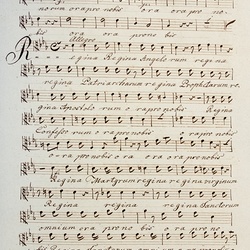 norum ora pro nobis ora ora pro no-
bis ora ora pro no bis
Allegro
Regina Regina Angelorum regina
regina Patriarcharum regina Prophetarum re-
gina Apostolorum ora pro nobis Regina
Confessorum ora pro nobis ora pro nobis
ora pro nobis ora ora pro nobis
Regina Martyrum regina regina virginum
Regina regina regina Sanctorum
omnium ora pro no bis ora pro no-